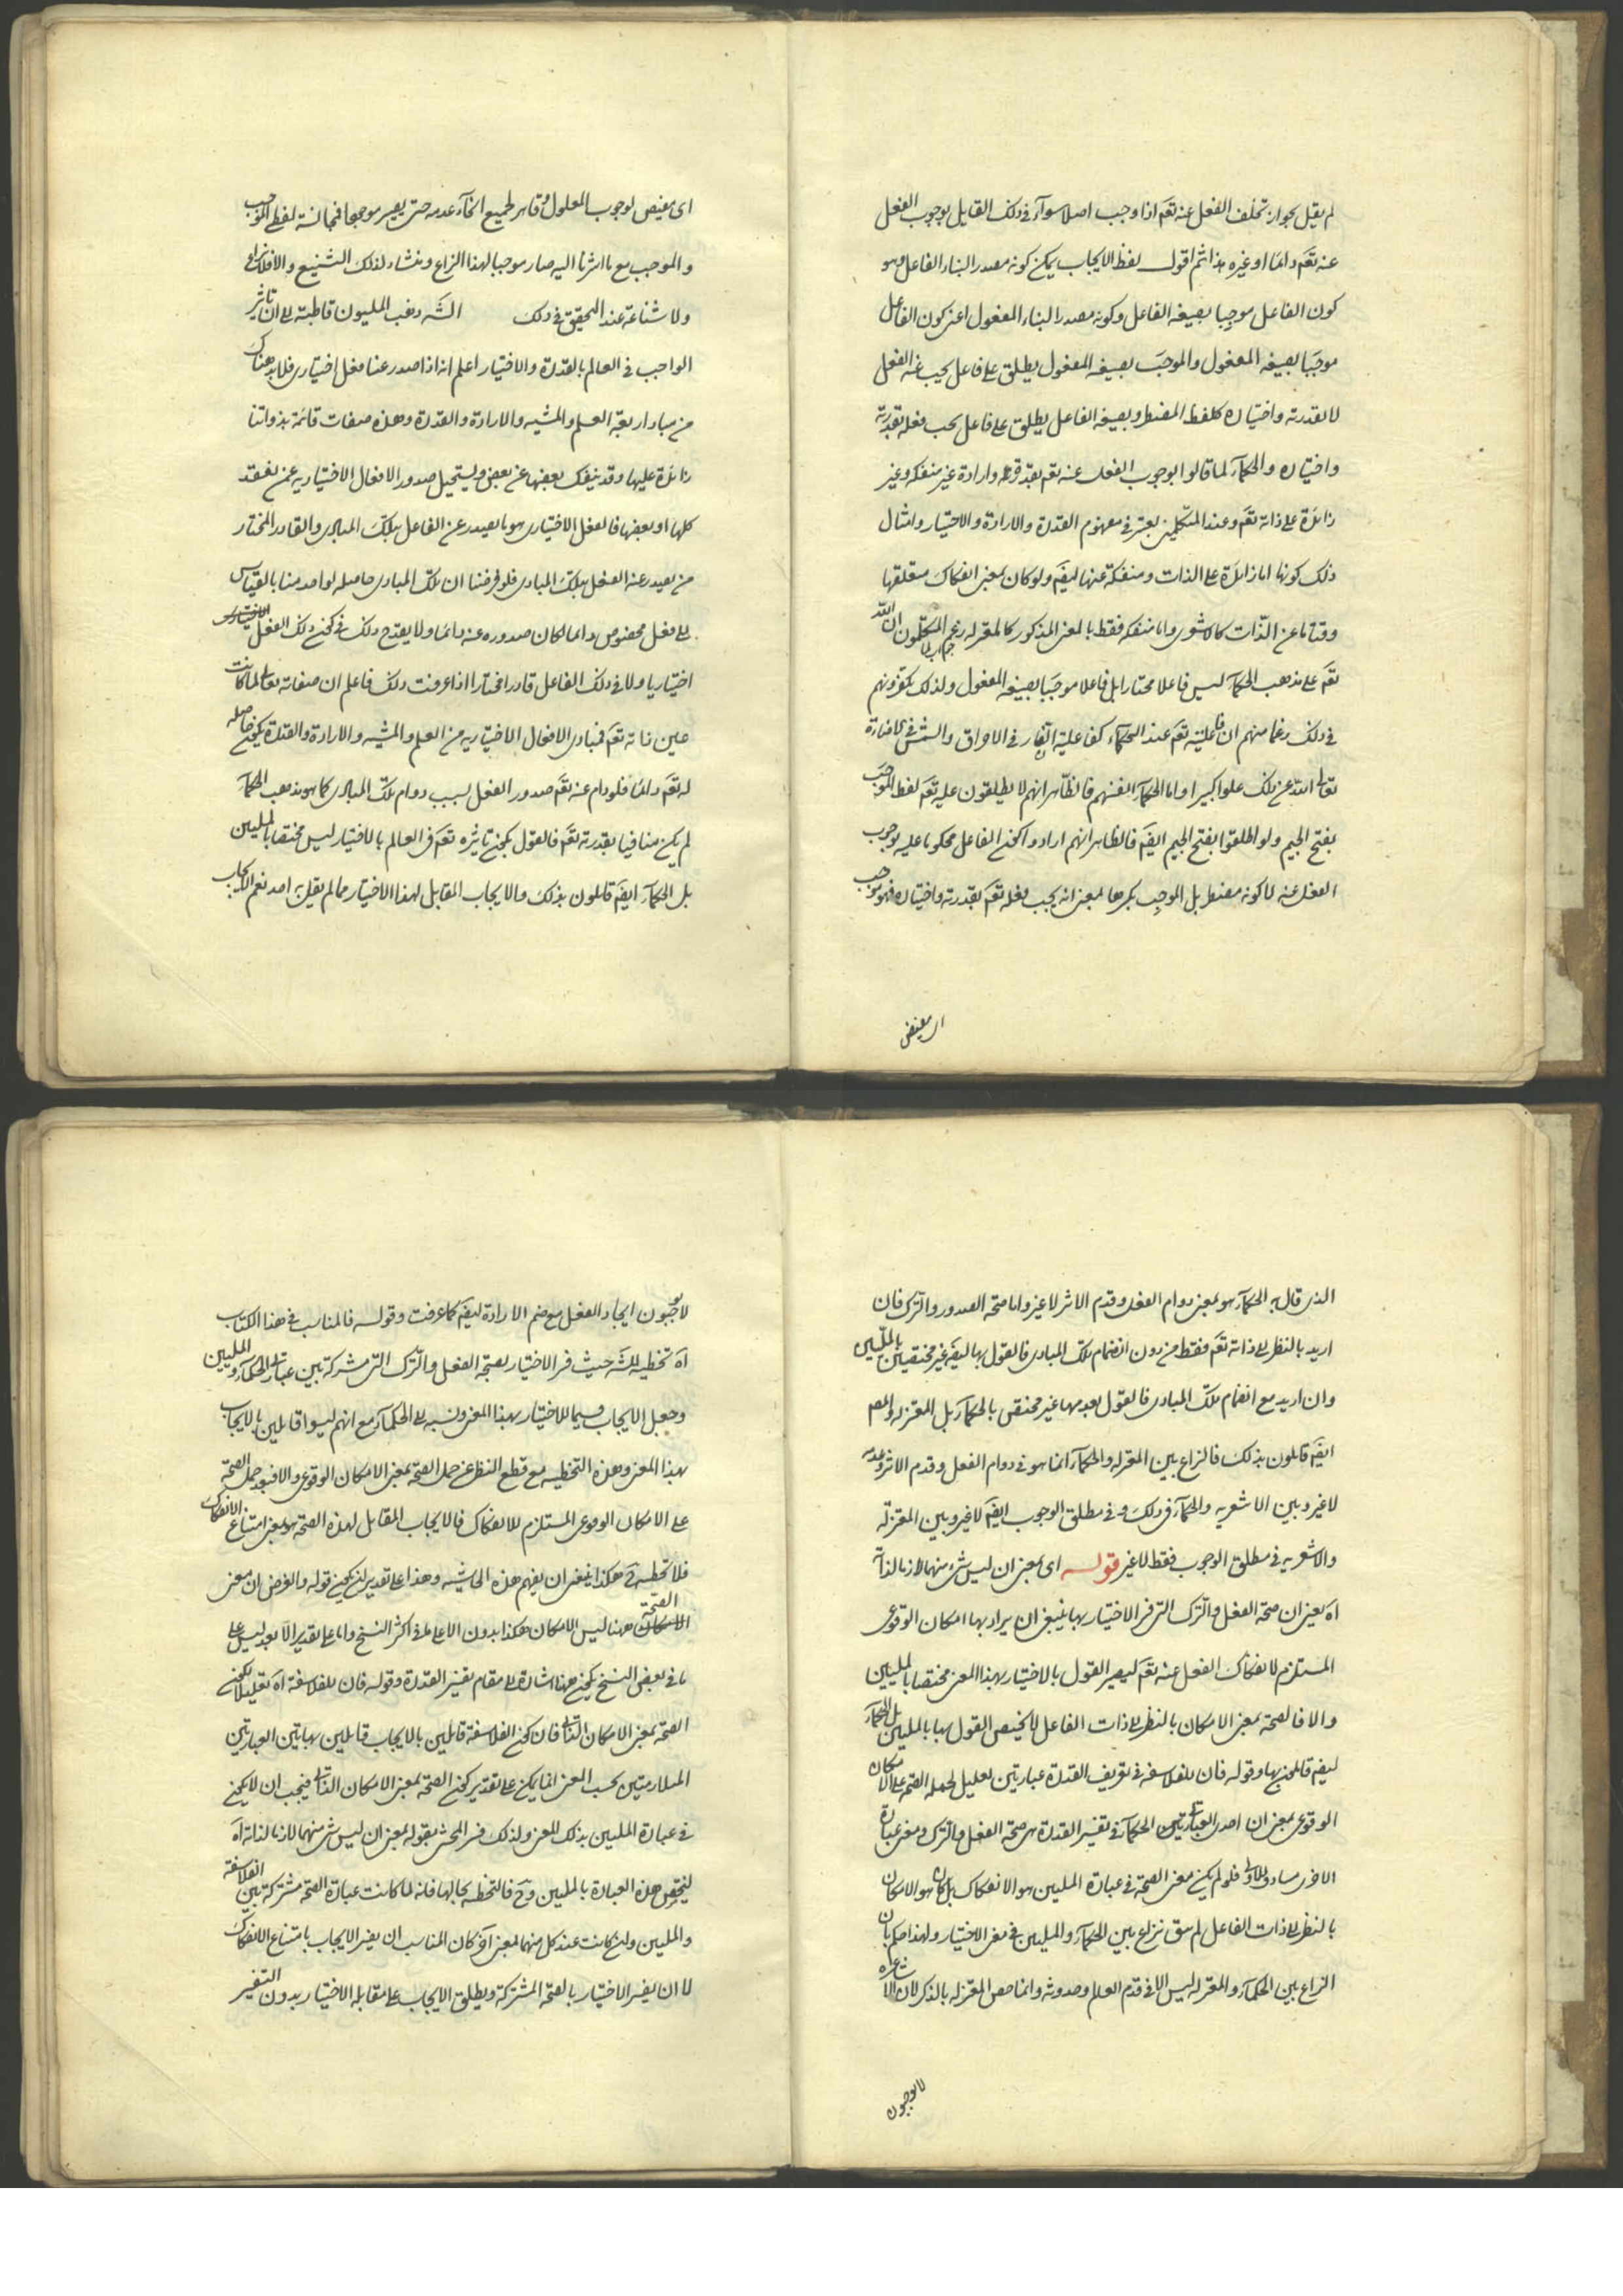 لم يقل بجواز تخلف الفعل عنه تعم اذا وجب اصلا سوآء فى ذلك القايل بوجوب الفعل
عنه تعم دائما او غيره هذا ثم اقول لفظ الايجاب يمكن كونه مصدر البناء الفاعل وهو
كون الفاعل موجِبا بصيغه الفاعل وكونه مصدر البناء المفعول اعنى كون الفاعل
موجَبا بصيغه المفعول والموجَب بصيغه المفعول يطلق على فاعل يجب عنه الفعل
لا بقدرته واختياره كلفظ المضطر وبصيغه الفاعل يطلق على فاعل يجب فعله بقدرته
واختياره والحكمآء لما قالوا بوجوب الفعل عنه تعم بقدرة وارادة غير منفكه وغير
زائدة على ذاته تعم وعند المتكلمين يعتبر فى مفهوم القدرة والارادة والاختيار وامثال
ذلك كونها اما زائدة على الذات ومنفكة عنها ايضم ولو كان بمعنى انفكاك متعلقها
وقتا ما عن الذات كالاشعرى واما منفكه فقط بالمعنى المذكور كالمعتزله زعم المتكلمون ان الله
تعم على مذهب الحكمآء ليس فاعلا مختارا بل فاعلا موجَبا بصيغه المفعول ولذلك يكفرونهم
فى ذلك زعما منهم ان فاعليته تعم عند الحكمآء كفاعلية النار فى الاحراق والشمس فى الاضاءة
تعالى الله عن ذلك علوا كبيرا واما الحكمآء انفسهم فالظاهر انهم لا يطلقون عليه تعم لفظ الموجَب
بفتح الجيم ولو اطلقوا بفتح الجيم ايضم فالظاهر انهم ارادوا كون الفاعل محكوما عليه بوجوب
الفعل عنه لا كونه مضطر بل الموجِب بكسرها بمعنى انه يجب فعله تعم بقدرته واختياره فهو موجب
اى مفيض
اى مفيض لوجوب المعلول وقاهر لجميع انحآء عدمه حتى يصير موجبا فمجانسة لفظى الموجب
والموجب مع ما اشرنا اليه صار موجبا لهذا النزاع ومنشاء لذلك التشنيع والا فلا نزاع
ولا شناعة عند التحقيق فى ذلك الشه ذهب المليون قاطبة الى ان تاثير
الواجب فى العالم بالقدرة والاختيار اعلم انه اذا صدر عنا فعل اختيارى فلا بد هناك
من مباد اربعة العلم والمشيه والارادة والقدرة وهذه صفات قائمة بذواتنا
زائدة عليها وقد ينفك بعضها عن بعض ويستحيل صدور الافعال الاختياريه عمن يفقد
كلها او بعضها فالفعل الاختيارى هو ما يصدر عن الفاعل بتلك المبادى والقادر المختار
من يصدر عنه الفعل بتلك المبادى فلو فرضنا ان تلك المبادى حاصله لواحد منا بالقياس
الى فعل مخصوص دائما لكان صدوره عنه دائما ولا يقدح ذلك فى كون ذلك الفعل
اختياريا ولا فى ذلك الفاعل قادرا مختارا اذا عرفت ذلك فاعلم ان صفاته تعالى لما كانت
عين ذاته تعم فمبادى الافعال الاختياريه من العلم والمشيه والارادة والقدرة يكون حاصله
له تعم دائما فلو دام عنه تعم صدور الفعل بسبب دوام تلك المبادى كما هو مذهب الحكمآء
لم يكن منافيا لقدرته تعم فالقول بكون تاثيره تعم فى العالم بالاختيار ليس مختصا بالمليين
بل الحكمآء ايضم قائلون بذلك والايجاب المقابل لهذا الاختيار مما لم يقل به احد نعم الايجاب
الذى قال به الحكمآء هو بمعنى دوام الفعل وقدم الاثر لا غير واما صحة الصدور والترك فان
اريد بالنظر الى ذاته تعم فقط من دون انضمام تلك المبادى فالقول بها ايضم غير مختص بالمليين
وان اريد مع انضمام تلك المبادى فالقول بعدمها غير مختص بالحكمآء بل المعتزله والمصم
ايضم قائلون بذلك فالنزاع بين المعتزله والحكمآء انما هو فى دوام الفعل وقدم الاثر وعدمه
لا غير وبين الاشعريه والحكمآء فى ذلك وفى مطلق الوجوب ايضم لا غير وبين المعتزله
والاشعريه فى مطلق الوجوب فقط لا غير قوله اى بمعنى ان ليس شئ منهما لازما لذاته
اه يعنى ان صحة الفعل والترك التى فسر الاختيار بها ينبغى ان يراد بها امكان الوقوعى
المستلزم لانفكاك الفعل عنه تعم ليصير القول بالاختيار بهذا المعنى مختصا بالمليين
والا فالصحة بمعنى الامكان بالنظر الى ذات الفاعل لا يختص القول بها بالمليين بل الحكمآء
ايضم قائلون بها وقوله فان للفلاسفه فى تعريف القدرة عبارتين تعليل لحمله الصحة على الامكان
الوقوعى بمعنى ان احدى العبارتين الحكمآء فى تفسير القدرة هى صحة الفعل والترك ومعنى عبارة
الاخرى مساو للاولى فلو لم يكن معنى الصحة فى عبارة المليين هو الانفكاك بل كان هو الامكان
بالنظر الى ذات الفاعل لم يبق نزاع بين الحكمآء والمليين فى معنى الاختيار ولهذا حكم بان
النزاع بين الحكمآء والمعتزله ليس الا فى قدم العالم وحدوثه وانما خص المعتزله بالذكر لان الاشاعره
لا يوجبون
لا يوجبون ايجاد الفعل مع ضم الارادة ايضم كما عرفت وقوله فالمناسب فى هذا الكتاب
اه تخطيه للشه حيث فسر الاختيار بصحة الفعل والترك التى مشتركة بين عبارتى الحكمآء والمليين
وجعل الايجاب قسيما للاختيار بهذا المعنى ونسبه الى الحكمآء مع انهم ليسوا قايلين بالايجاب
بهذا المعنى وهذه التخطيه مع قطع النظر عن حمل الصحة بمعنى الامكان الوقوعى والا فبعد حمل الصحة
على الامكان الوقوعى المستلزم للانفكاك فالايجاب المقابل لهذه الصحة هو بمعنى امتناع الانفكاك
فلا تخطيه هكذا ينبغى ان يفهم هذه الحاشيه وهذا على تقدير ان يكون قوله والغرض ان معنى
الصحة ههنا ليس الامكان هكذا بدون الا على ما فى اكثر النسخ واما على تقدير الا بعد ليس على
ما فى بعض النسخ يكون هنا اشارة الى مقام تفسير القدرة وقوله فان للفلاسفة اه تعليلا لكون
الصحة بمعنى الامكان الذاتى فان كون الفلاسفة قايلين بالايجاب قايلين بهاتين العبارتين
المتلازمتين بحسب المعنى انما يمكن على تقدير كون الصحة بمعنى الامكان الذاتى فيجب ان لا يكون
فى عبارة المليين بذلك المعنى ولذلك فسر المحشى بقوله بمعنى ان ليس شئ منهما لازما لذاته اه
ليختص هذه العبارة بالمليين وح فالتخطيه بحالها فانه لما كانت عبارة الصحة مشتركة بين الفلاسفة
والمليين وان كانت عند كل منهما بمعنى آخر كان المناسب ان يفسر الايجاب بامتناع الانفكاك
لا ان يفسر الاختيار بالصحة المشتركة ويطلق الايجاب على مقابله الاختيار بدون التفسير